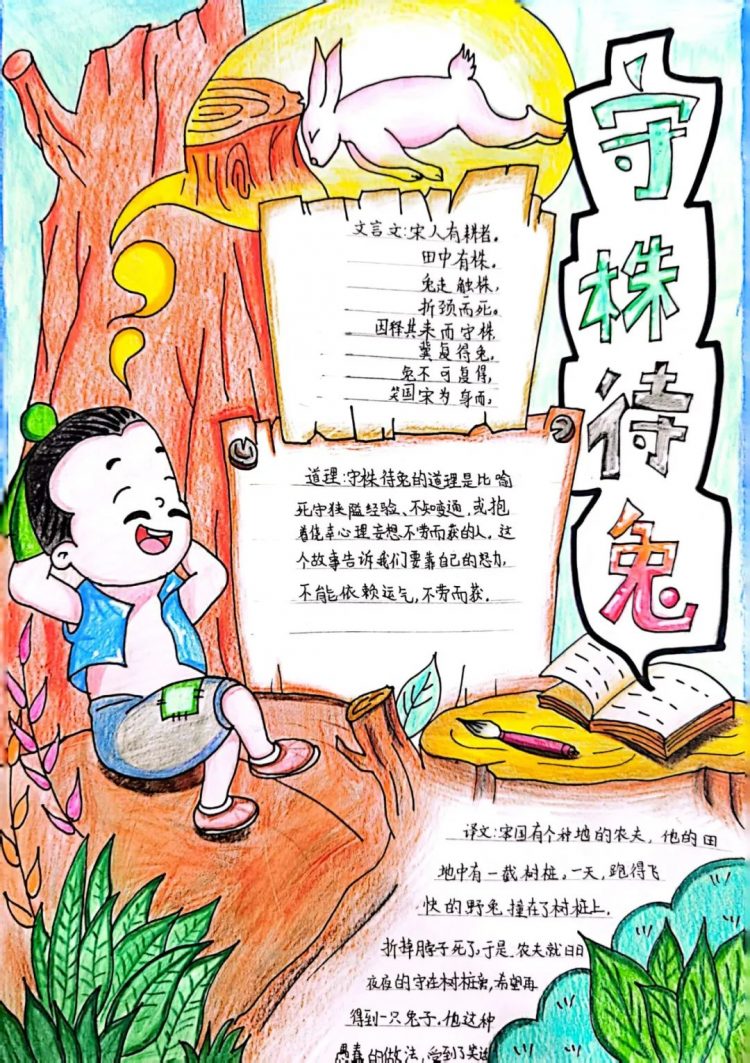 守株待兔
文言文:宋人有耕者。
田中有株。
兔走触株,
折颈而死。
因释其耒而守株
冀复得兔,
兔不可复得,
笑国宋为身而,
道理:守株待兔的道理是比喻
死守狭隘经验、不知变通,或抱
着侥幸心理妄想不劳而获的人。这
个故事告诉我们要靠自己的努力,
不能依赖运气,不劳而获.
译文:宋国有个种地的农夫,他的田
地中有一截树桩。一天,跑得飞
快的野兔撞在了树桩上.
折掉脖子死了,于是.农夫就日日
夜夜的守在树桩旁,希望再
得到一只兔子.他这种
愚蠢的做法,受到了笑话